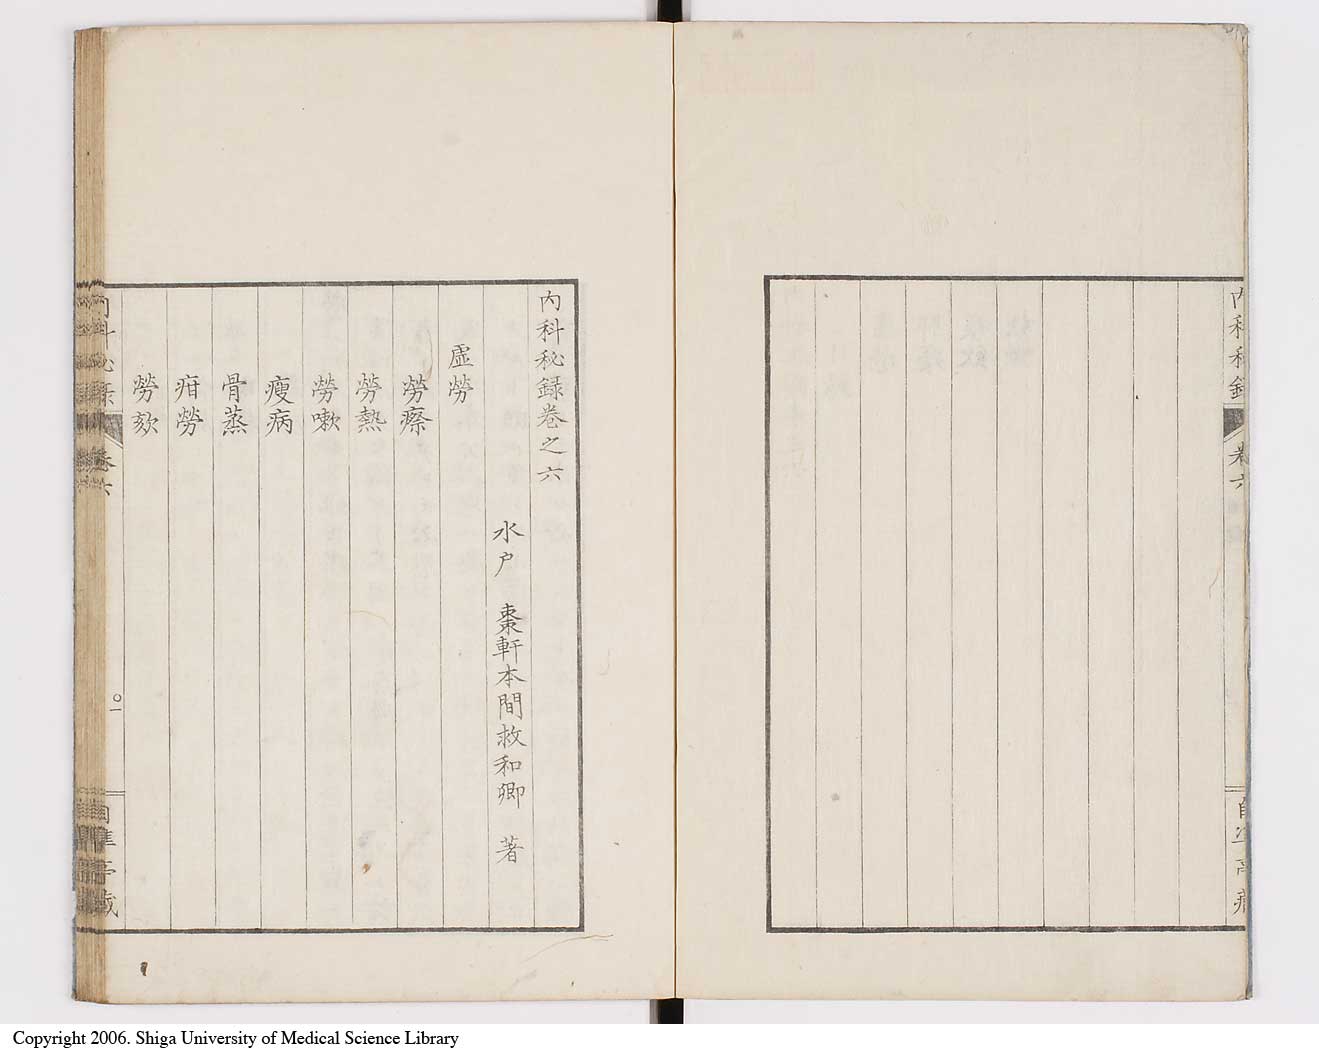 內科秘録
卷六
內科秘録卷之六
水戸 棗軒本間救和卿 著
虛勞
勞瘵
勞熱
勞嗽
瘦病
骨蒸
疳勞
勞欬
內科秘録
卷六
〇一
自準亭藏
Copyright 2006. Shiga University of Medical Science Library